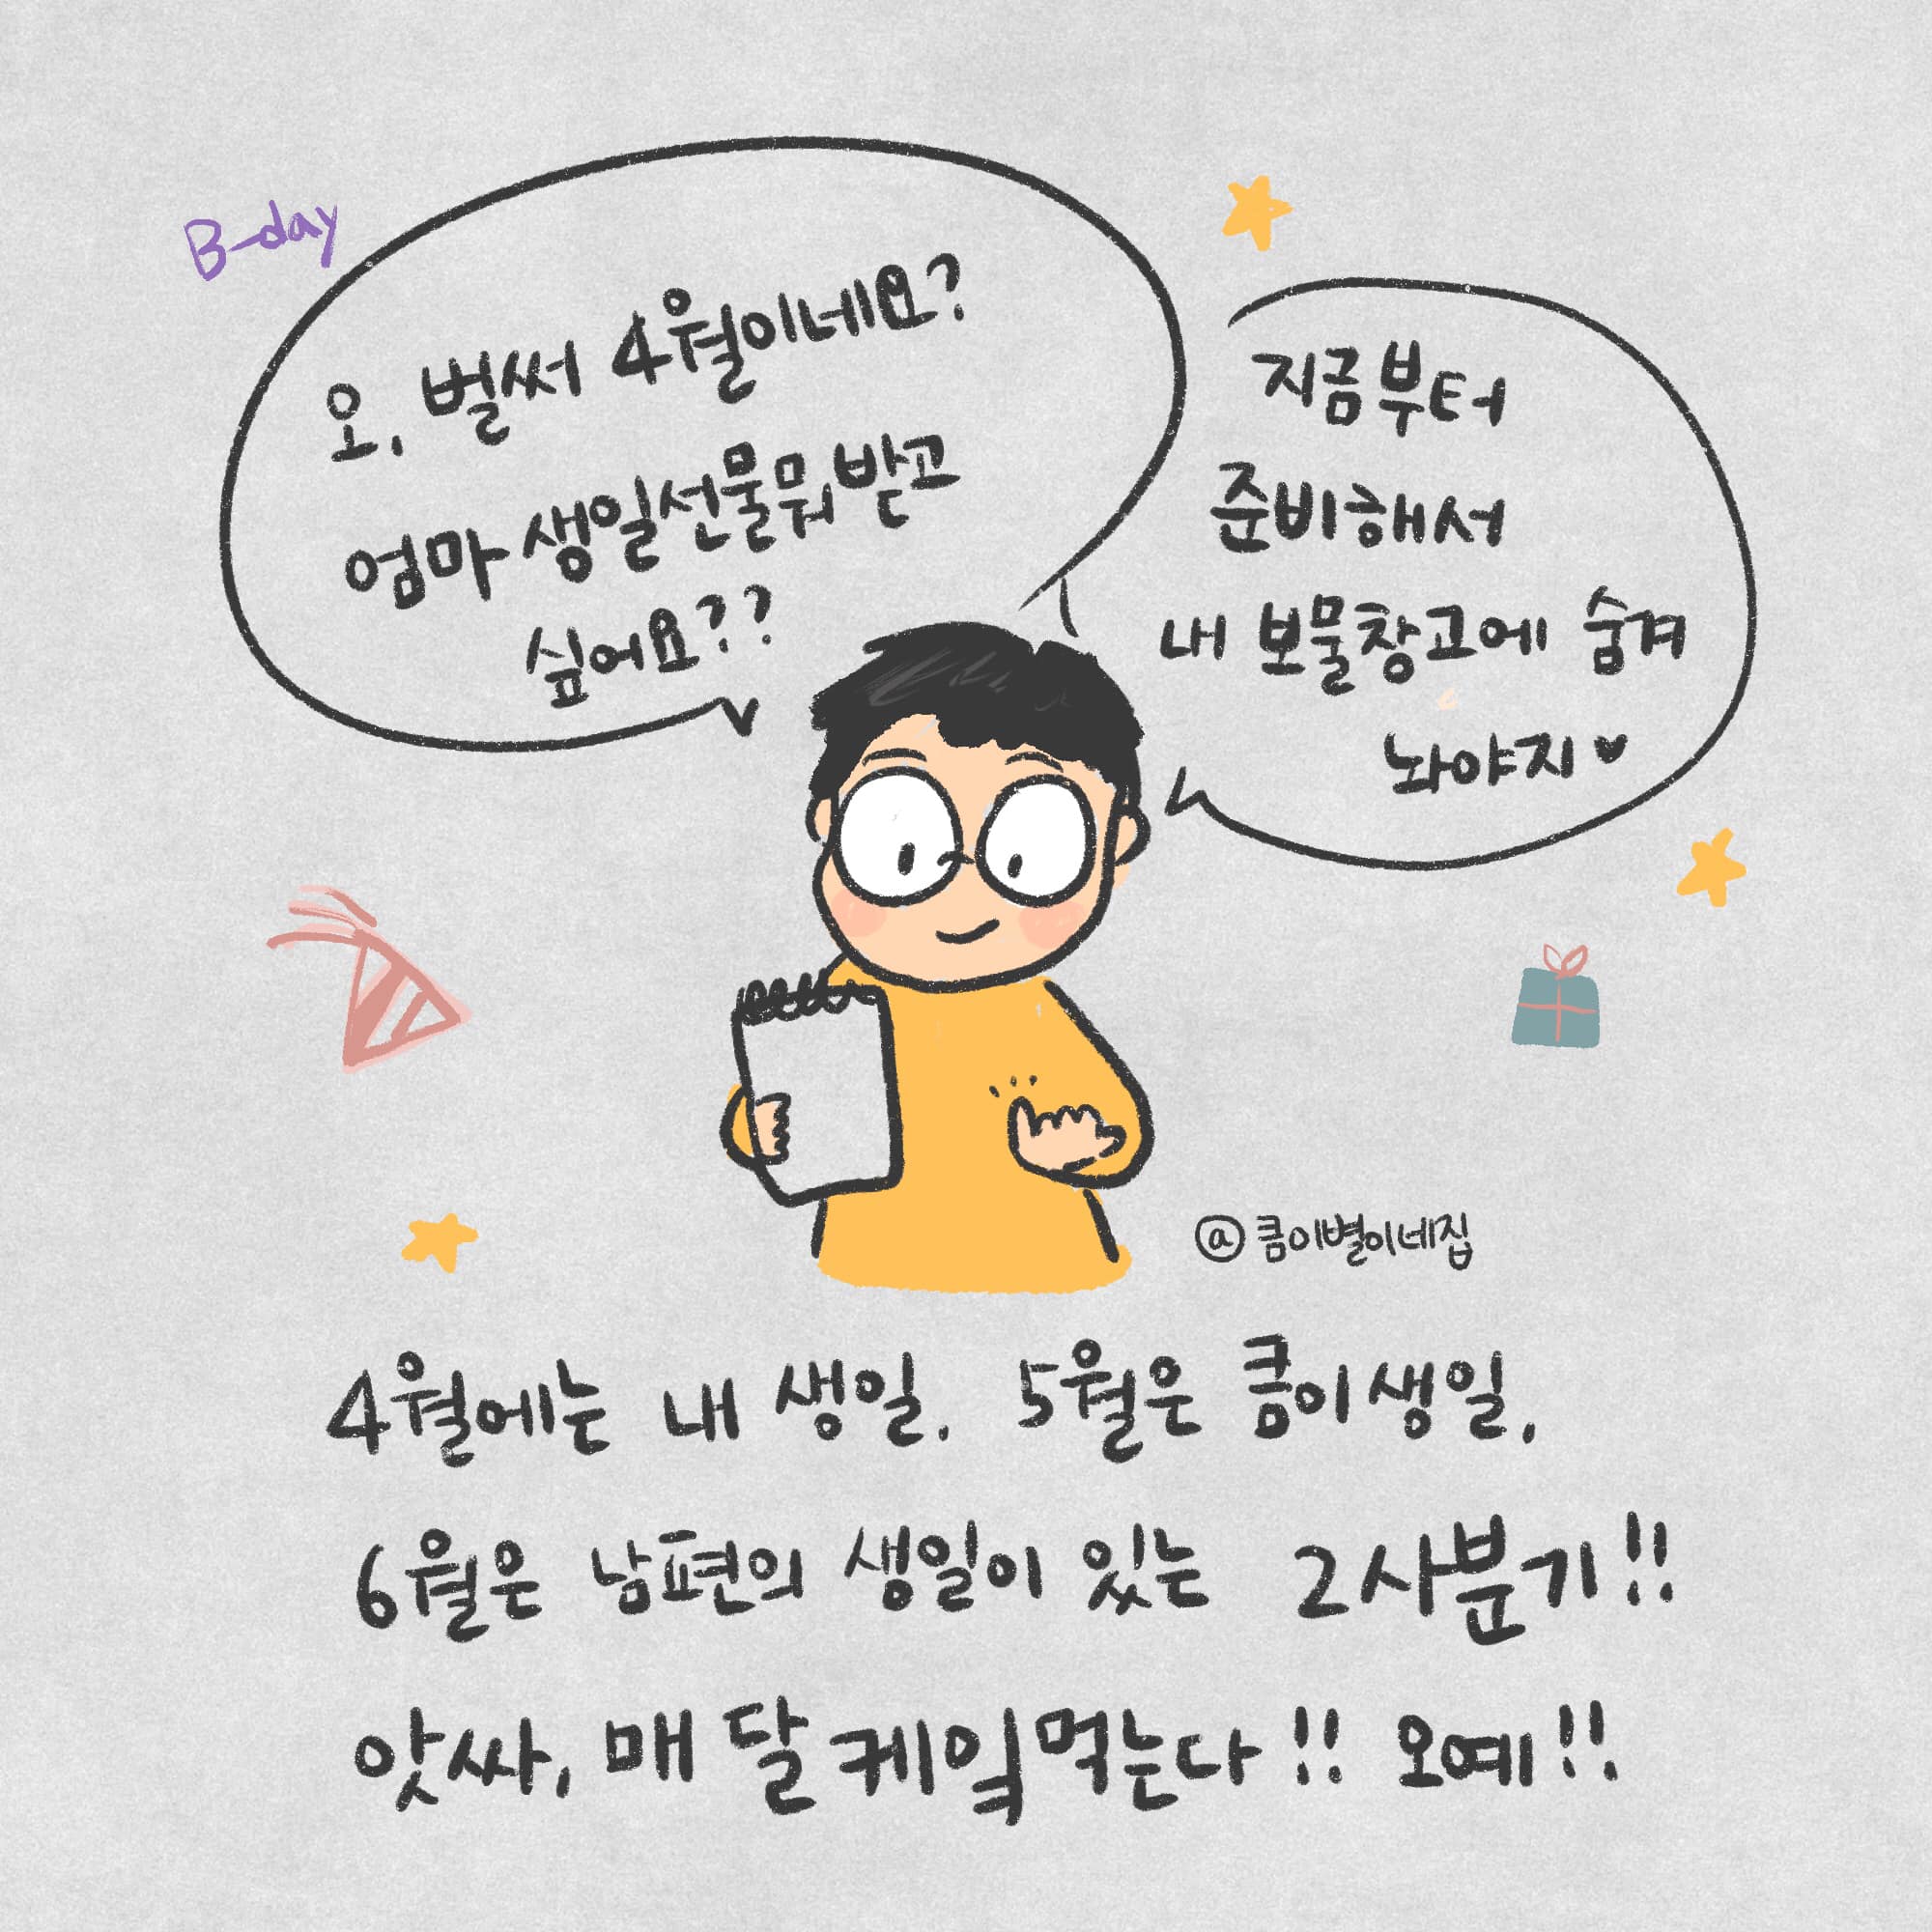 B-day
오, 벌써 4월이네요?
엄마 생일선물뭐받고
싶어요??
지금부터
준비해서
내 보물창고에 숨겨
놔야지♥
@콤이별이네집
4월에는 내 생일. 5월은 콤이생일,
6월은 남편의 생일이 있는 2사분기!!
앗싸, 매 달 케잌먹는다!! 오예!!